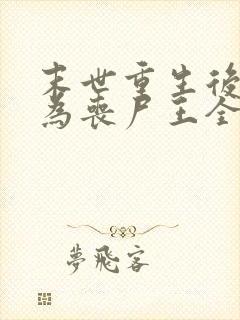 末世重生後
為喪尸王全
夢飛客